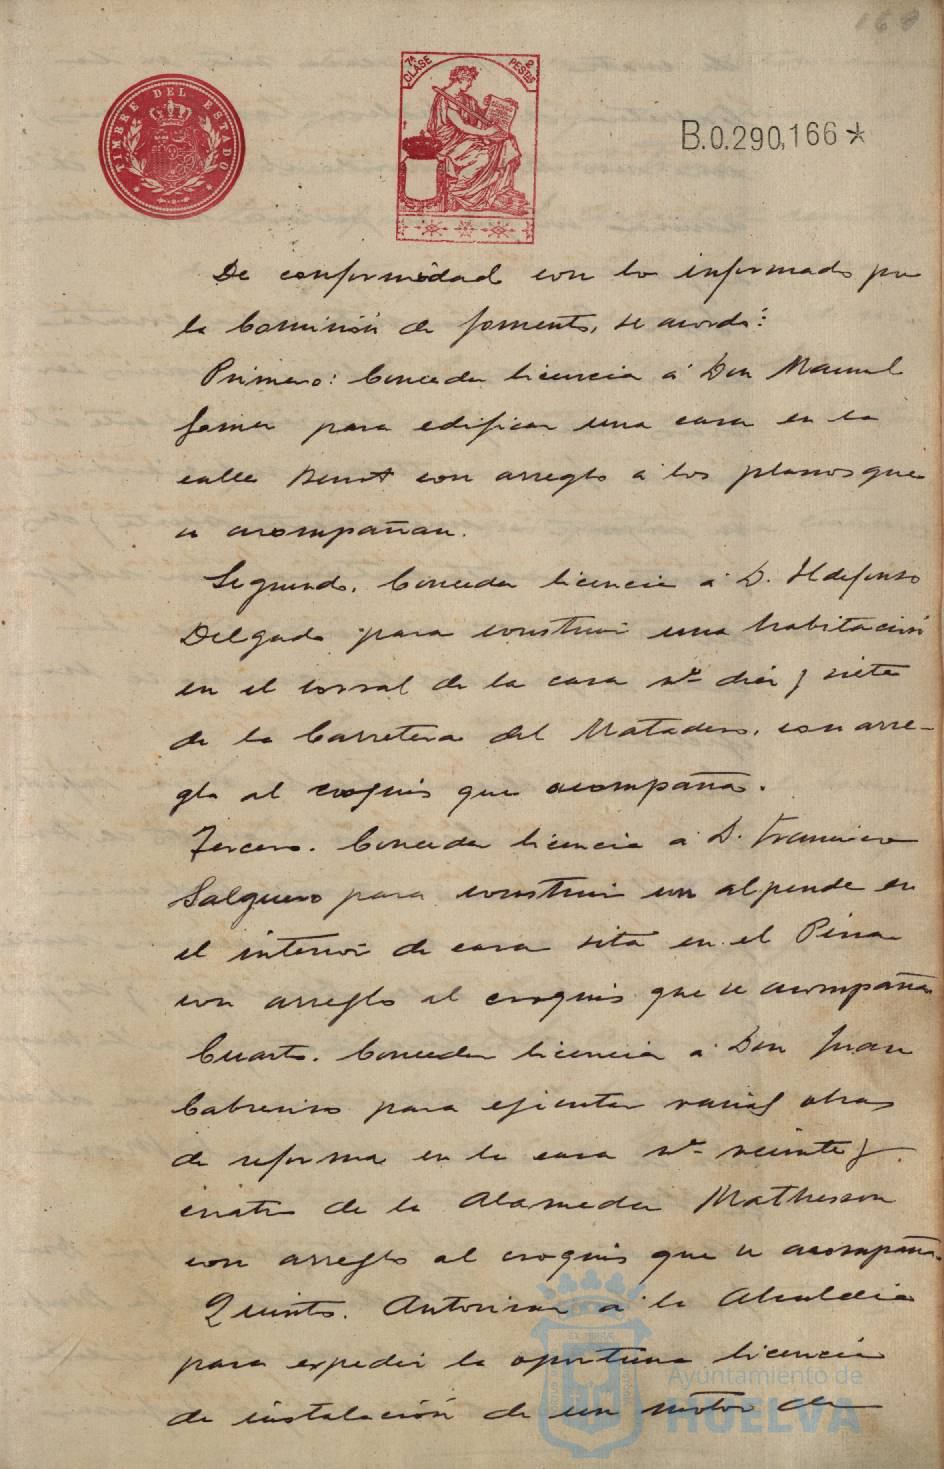 168
TIMBRE DEL ESTADO
7ª CLASE 2 PESTAS
B.0.290,166*
De conformidad con lo informado por
la Comisión de fomento, se acordó:
Primero: Conceder licencia á Don Manuel
para edificar una casa en la
calle con arreglo á los planos que
se acompañan.
Segundo. Conceder licencia á D. Ildefonso
Delgado para construir una habitación
en el corral de la casa nº diez y siete
de la Carretera del Matadero, con arre-
glo al croquis que acompaña.
Tercero. Conceder licencia á D. Francisco
Salguero para construir un alpende en
el interior de casa sita en el
con arreglo al croquis que se acompaña
Cuarto. Conceder licencia á Don Juan
para ejecutar varias obras
de reforma en la casa nº veinte y
cuatro de la Alameda Mathesson
con arreglo al croquis que se acompaña.
Quinto. Autorizar á la Alcaldia
para expedir la oportuna licencia
de instalación de un motor de
Ayuntamiento de
HUELVA